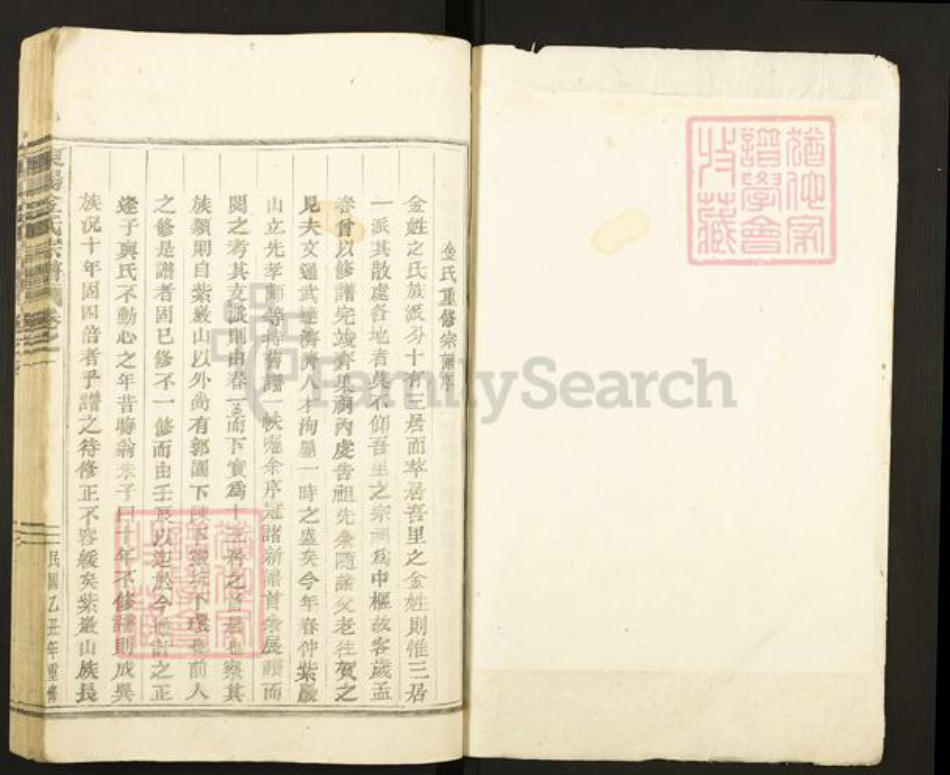 猶他家
譜學會
收藏
金氏重修宗譜序
金姓之氏族派分十有三居而萃居吾里之金姓則惟三居
一派其散處各地者莫不仰吾里之宗祠為中樞故客歲孟
春曾以修譜完竣齊集祠內虔告祖先余隨諸父老往賀之
見夫文通武達濟濟人才洵屬一時之盛矣今年春仲紫巖
山立先孝師等持舊譜一帙囑余序冠諸新譜首余展讀而
閱之考其支派則由春一而下實為十三之居也察其
族類則自紫巖山以外尚有郭園下陳下下環前人
之修是譜者固已修不一修而由壬辰以迄於今計之正
逢子輿氏不動心之年昔時翁朱子曰十年不修譜則成異
族況十年固四倍者乎譜之待修正不容緩矣紫巖山族長
東陽金氏宗譜
民國乙丑年重修
猶他家
譜學會
收藏
FamilySearch